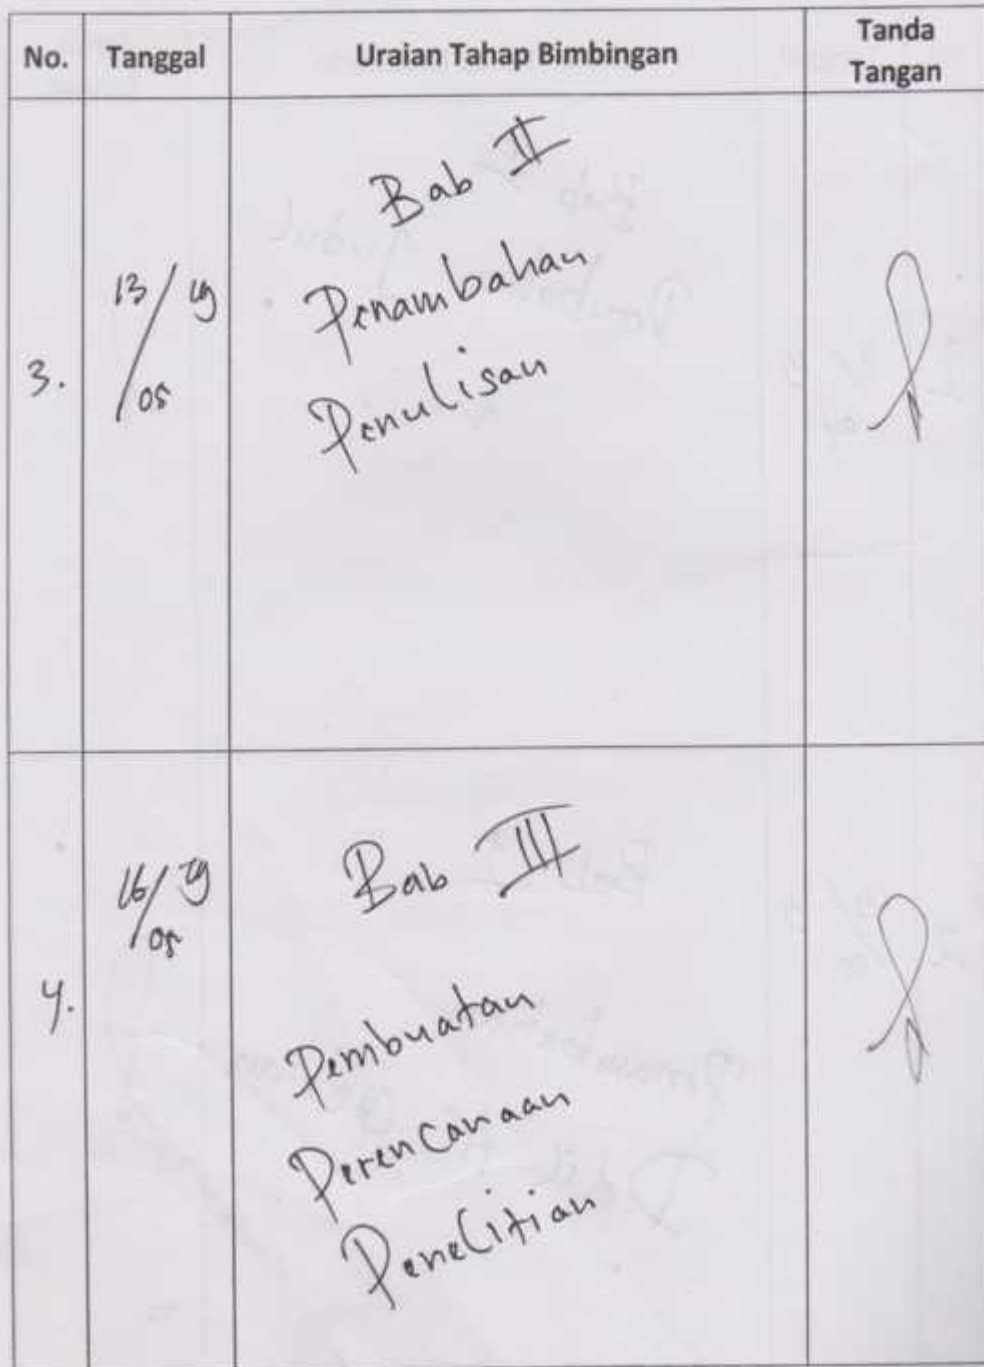 No. Tanggal Uraian Tahap Bimbingan Tanda
Tangan
Bab II
13/05 19
Penambahan
3.
Penulisan
16/05 19
Bab III
4.
Pembuatan
Perencanaan
Penelitian